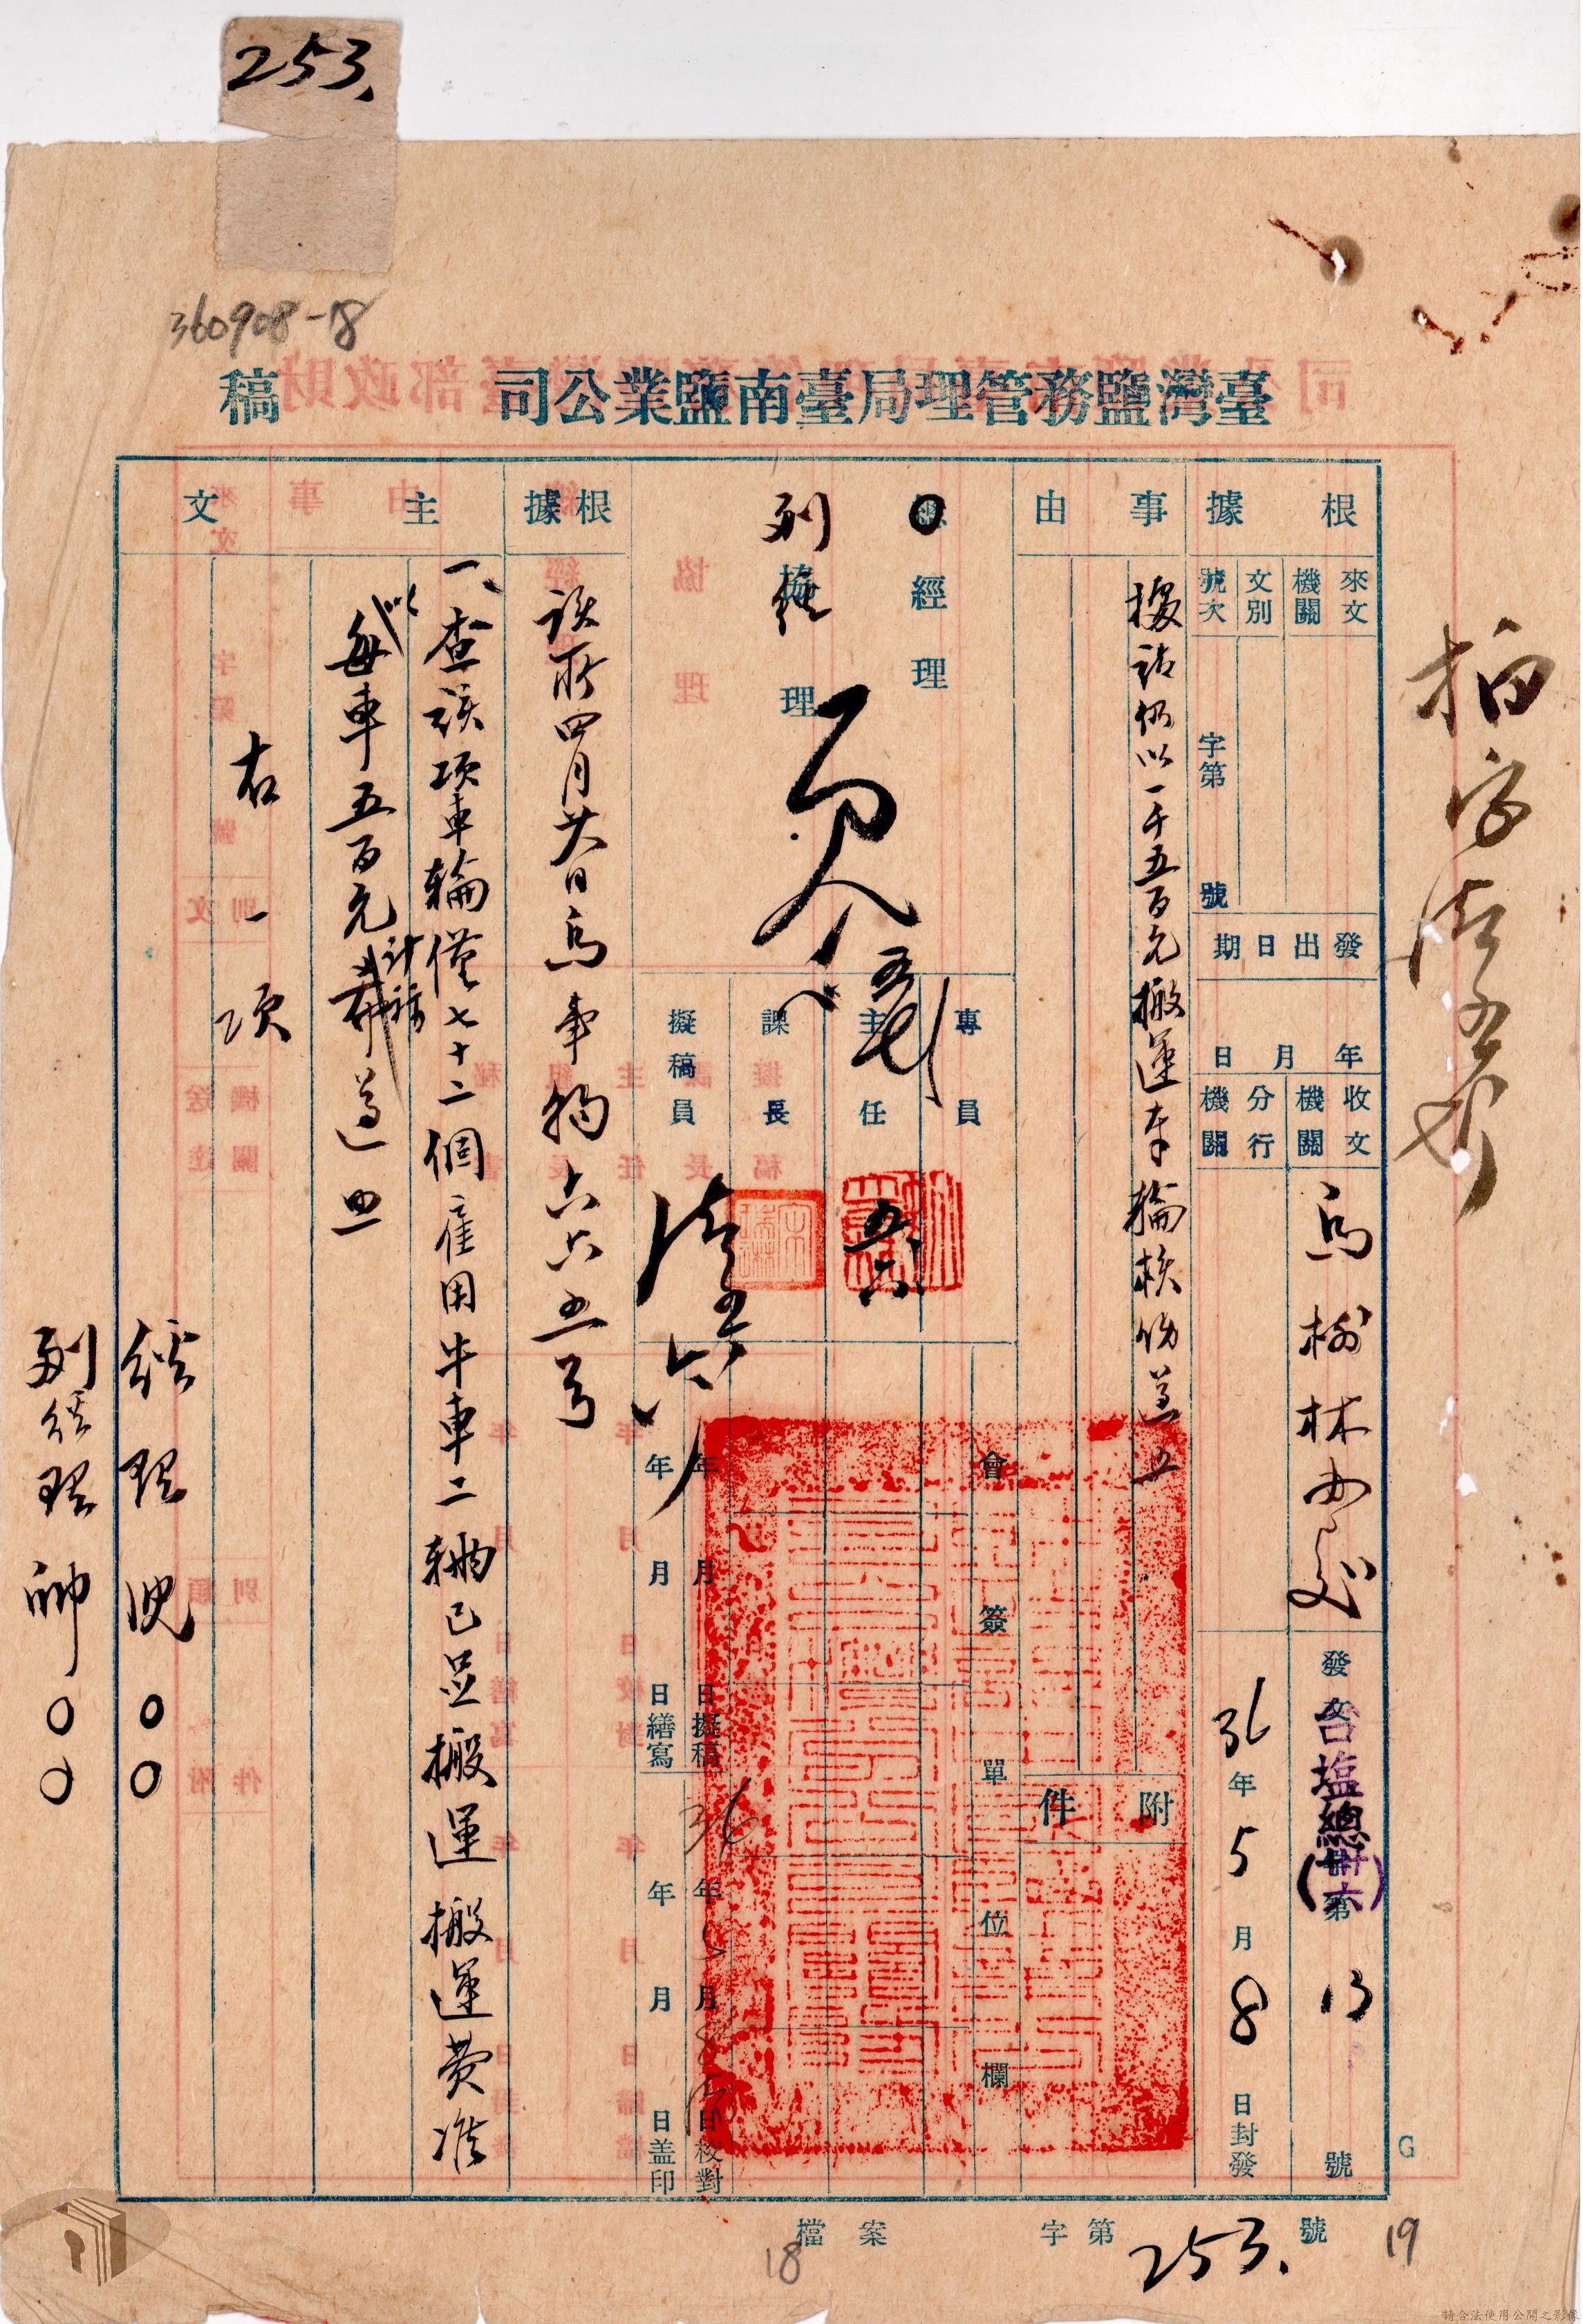 253.
360908-18
臺灣鹽務管理局臺南鹽業公司 稿
根據
來文機關
文別
號次 字第 號
發出日期
年 月 日
收文機關 烏樹林
分行機關
發文 台塩總(卅六)第 13 號
36年5月8日封發
事由
據請仍以一千五百元搬運車輪核仰遵照
附件
總經理
協理
專員
主任
課長
擬稿員
五六
會簽單位欄
年 月 日擬稿
年 月 日繕寫
36年5月8日校對
年 月 日盖印
根據
該所四月廿八日烏事物六六五号
主文
一、查該項車輪僅七十二個雇用牛車二輛已足搬運搬運費准
以每車五百元計核希遵照
右一項
經理 〇〇
副經理 帥〇〇
檔案 字第 253. 號
18
19
G
請合法使用公開之影像